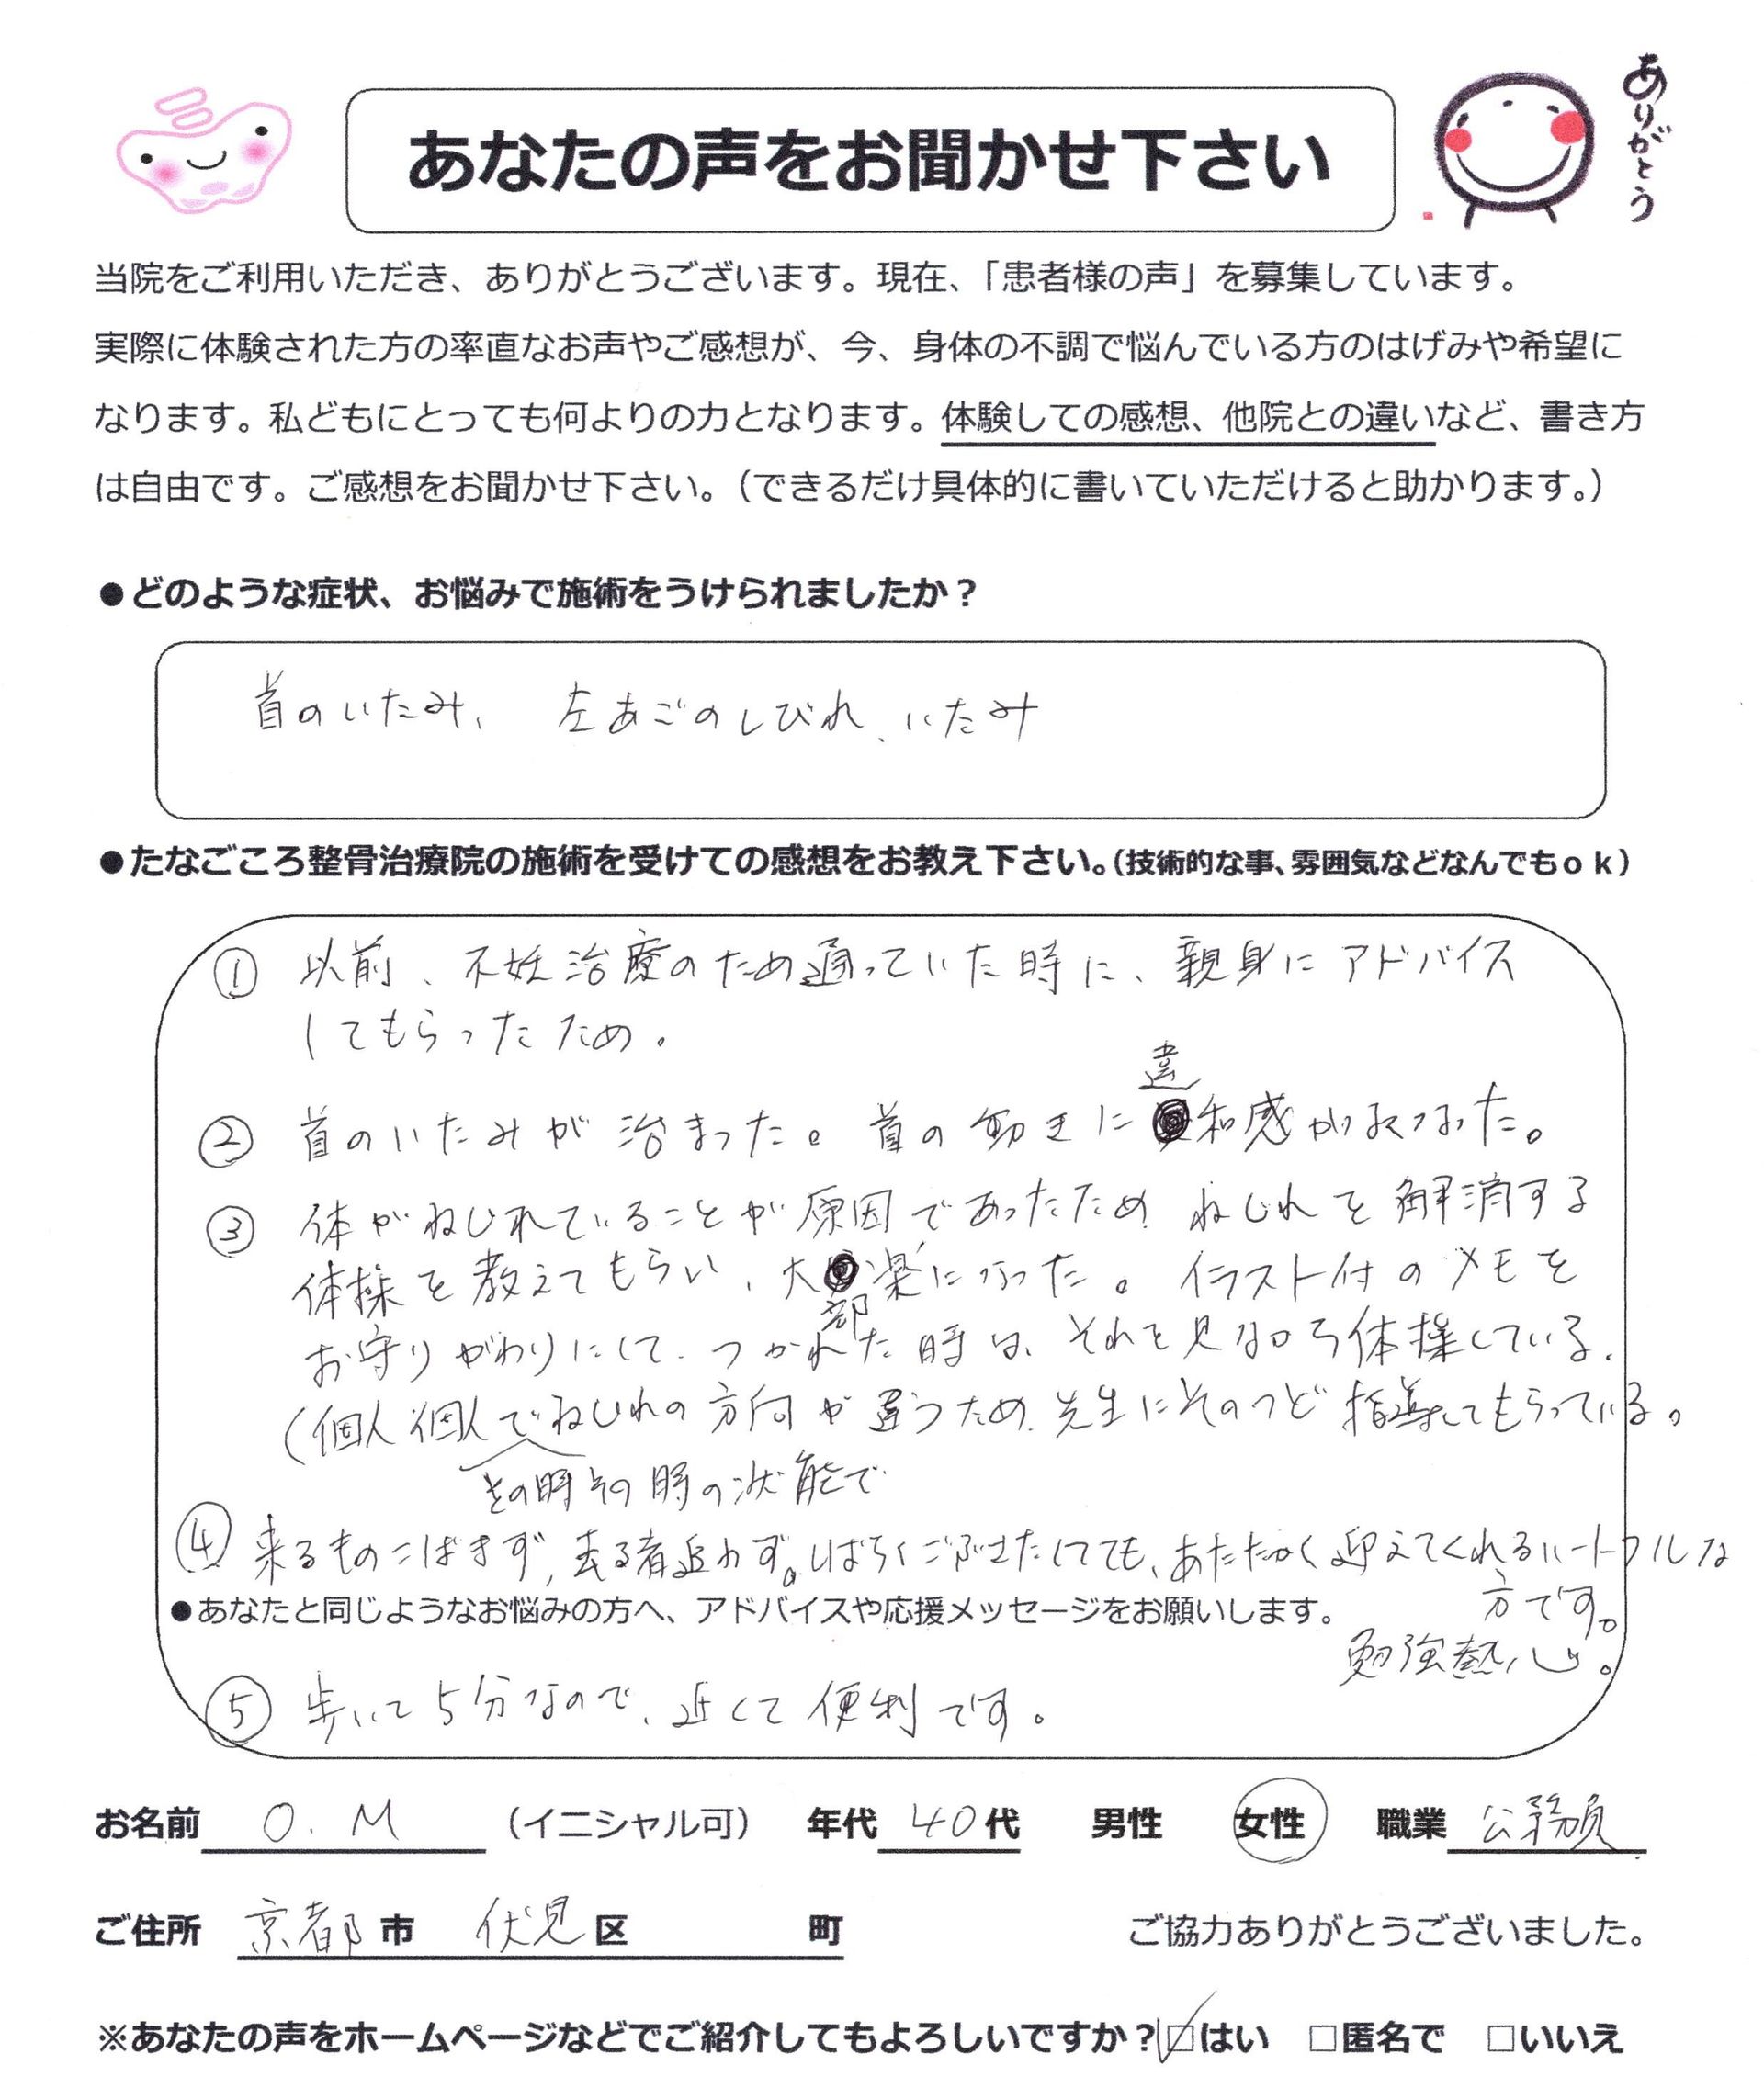 あなたの声をお聞かせ下さい
ありがとう
当院をご利用いただき、ありがとうございます。現在、「患者様の声」を募集しています。
実際に体験された方の率直なお声やご感想が、今、身体の不調で悩んでいる方のはげみや希望に
なります。私どもにとっても何よりの力となります。体験しての感想、他院との違いなど、書き方
は自由です。ご感想をお聞かせ下さい。（できるだけ具体的に書いていただけると助かります。）
●どのような症状、お悩みで施術をうけられましたか？
首のいたみ、 左あごのしびれ、いたみ
●たなごころ整骨治療院の施術を受けての感想をお教え下さい。（技術的な事、雰囲気などなんでもｏｋ）
① 以前、不妊治療のため通っていた時に、親身にアドバイス
してもらったため。
② 首のいたみが治まった。首の動きに違和感がなくなった。
③ 体がねじれていることが原因であったため、ねじれを解消する
体操を教えてもらい、大部楽になった。イラスト付のメモを
お守りがわりにして、つかれた時は、それを見ながら体操している。
（個人個人でねじれの方向が違うため、先生にそのつど指導してもらっている。
その時その時の状態で
④ 来るものこばまず、去る者追わず。しばらくごぶさたしてても、あたたかく迎えてくれるハートフルな
方です。
●あなたと同じようなお悩みの方へ、アドバイスや応援メッセージをお願いします。
勉強熱心。
⑤ 歩いて5分なので、近くて便利です。
お名前 O. M （イニシャル可） 年代 40代 男性 女性 職業 公務員
ご住所 京都市 伏見区 町 ご協力ありがとうございました。
※あなたの声をホームページなどでご紹介してもよろしいですか？☑はい □匿名で □いいえ